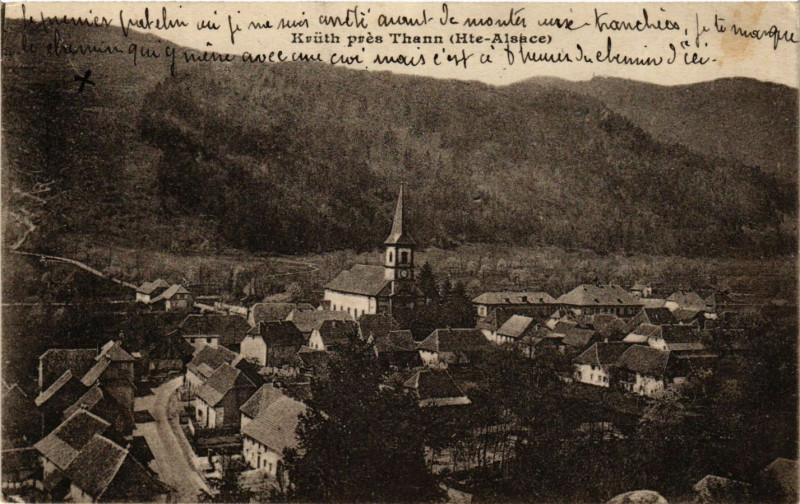 le premier patelin où je me suis arrêté avant de monter aux tranchées, je te marque
Krüth près Thann (Hte-Alsace)
le chemin qui y mène avec une croix mais c'est à 1 heure du chemin d'ici.